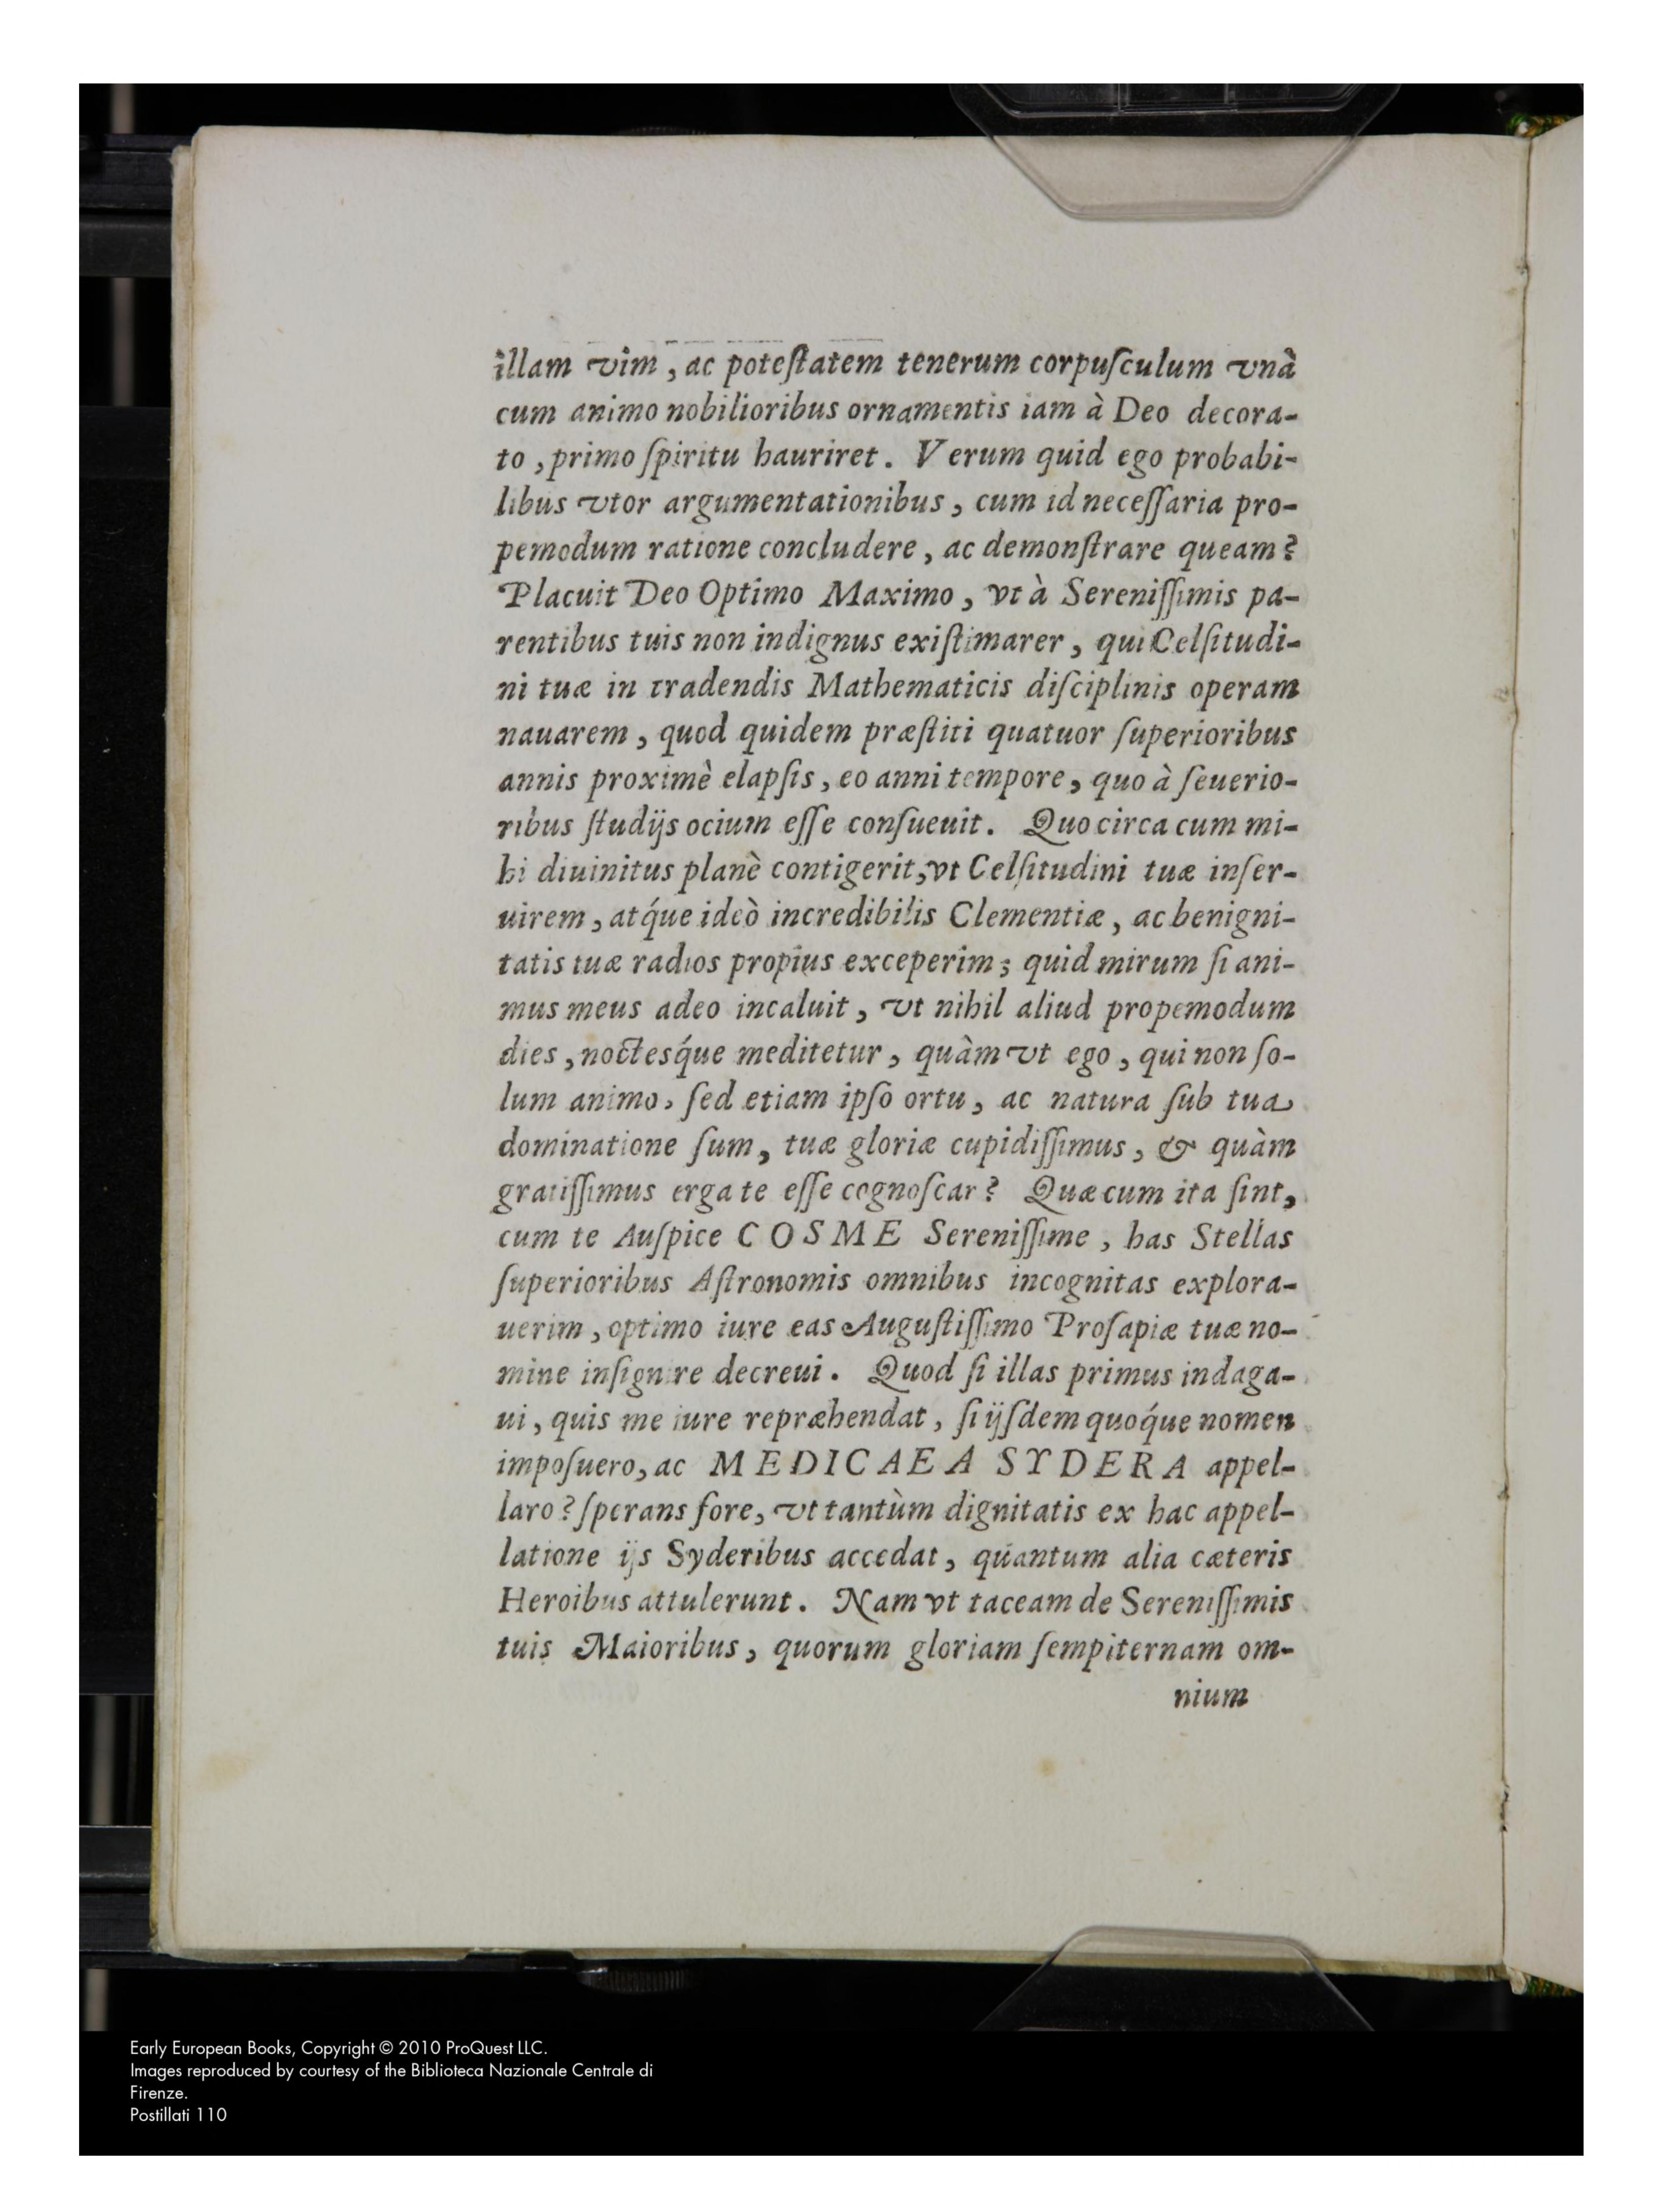 illam vim, ac poteſtatem tenerum corpuſculum vnà
cum animo nobilioribus ornamentis iam à Deo decora-
to, primo ſpiritu hauriret. Verum quid ego probabi-
libus vtor argumentationibus, cum id neceſſaria pro-
pemodum ratione concludere, ac demonſtrare queam?
Placuit Deo Optimo Maximo, vt à Sereniſſimis pa-
rentibus tuis non indignus exiſtimarer, qui Celſitudi-
ni tuæ in tradendis Mathematicis diſciplinis operam
nauarem, quod quidem præſtiti quatuor ſuperioribus
annis proximè elapſis, eo anni tempore, quo à ſeuerio-
ribus ſtudijs ocium eſſe conſueuit. Quocirca cum mi-
hi diuinitus planè contigerit, vt Celſitudini tuæ inſer-
uirem, atq́ue ideò incredibilis Clementiæ, ac benigni-
tatis tuæ radios propius exceperim; quid mirum ſi ani-
mus meus adeo incaluit, vt nihil aliud propemodum
dies, noctesq́ue meditetur, quàm vt ego, qui non ſo-
lum animo, ſed etiam ipſo ortu, ac natura ſub tua
dominatione ſum, tuæ gloriæ cupidiſſimus, & quàm
gratiſſimus erga te eſſe cognoſcar? Quæ cum ita ſint,
cum te Auſpice COSME Sereniſſime, has Stellas
ſuperioribus Aſtronomis omnibus incognitas explora-
uerim, optimo iure eas Auguſtiſſimo Proſapiæ tuæ no-
mine inſignire decreui. Quod ſi illas primus indaga-
ui, quis me iure repræhendat, ſi ijſdem quoq́ue nomen
impoſuero, ac MEDICAEA SYDERA appel-
laro? ſperans fore, vt tantùm dignitatis ex hac appel-
latione ijs Syderibus accedat, quantum alia cæteris
Heroibus attulerunt. Nam vt taceam de Sereniſſimis
tuis Maioribus, quorum gloriam ſempiternam om-
nium
Early European Books, Copyright © 2010 ProQuest LLC.
Images reproduced by courtesy of the Biblioteca Nazionale Centrale di
Firenze.
Postillati 110